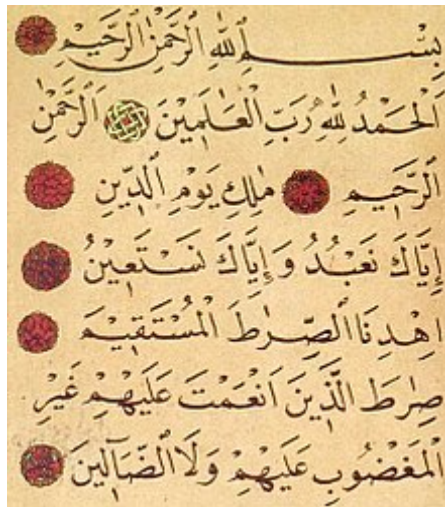 بِسْمِ اللهِ الرَّحْمٰنِ الرَّحِيْمِ
اَلْحَمْدُ لِلّٰهِ رَبِّ الْعٰلَمِيْنَ اَلرَّحْمٰنِ
الرَّحِيْمِ مٰلِكِ يَوْمِ الدِّيْنِ
اِيَّاكَ نَعْبُدُ وَاِيَّاكَ نَسْتَعِيْنُ
اِهْدِنَا الصِّرٰطَ الْمُسْتَقِيْمَ
صِرٰطَ الَّذِيْنَ اَنْعَمْتَ عَلَيْهِمْ غَيْرِ
الْمَغْضُوْبِ عَلَيْهِمْ وَلَا الضَّآلِّيْنَ